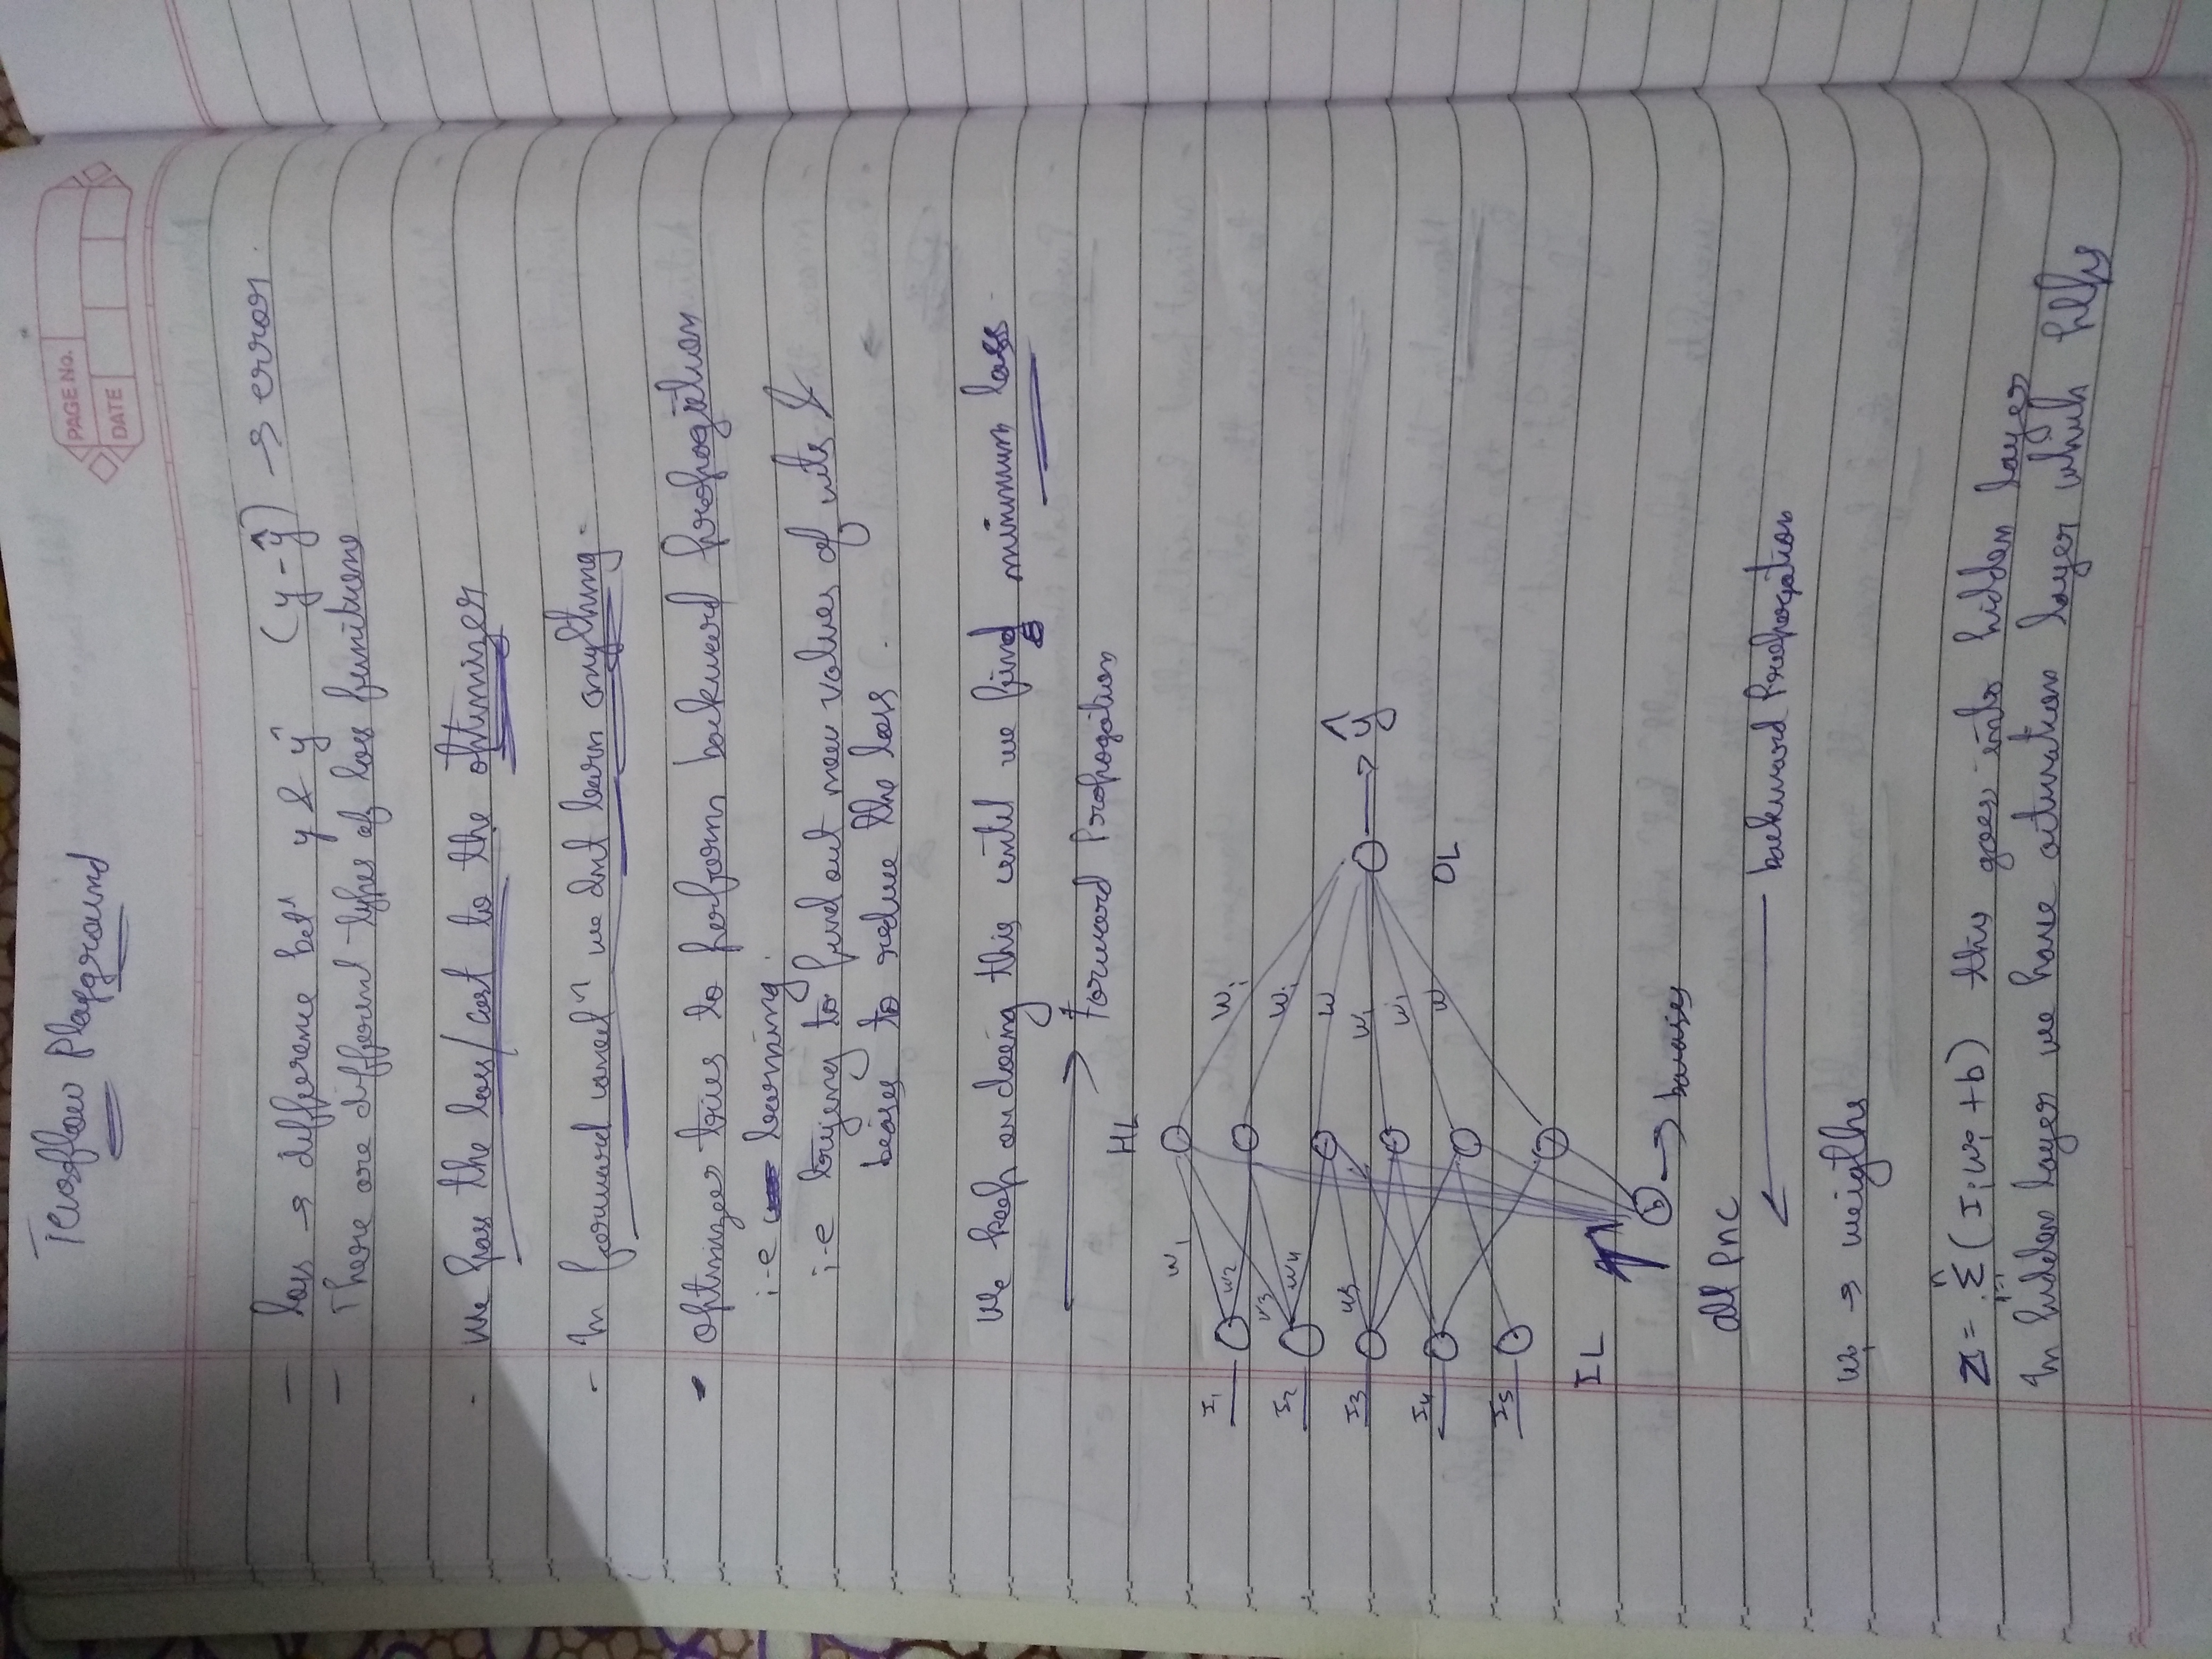 PAGE NO.
DATE
Tensflow Playground
- loss → difference betn y & ŷ (y - ŷ) → error.
- There are different types of loss functions
- We pass the loss/cost to the optimizer
- In forward connecn we dnt learn anything.
• Optimizer tries to perform backward propogation
i-e learning.
i-e trying to find out new values of wts &
baises to reduce the loss.
We keep on doing this until we find minimum loss.
→ Forward Propogation
HL
I1 w1
w2
I2 w3
w4
I3 w5
I4
I5
wi
wi
w
wi
wi
w
ŷ
OL
IL
b → baises
all Pnc
← backward Propogation
wi → weights
Z = n Σ i=1 (Ii wi + b) this goes into hidden layer
In hidden layer we have activation layer which helps